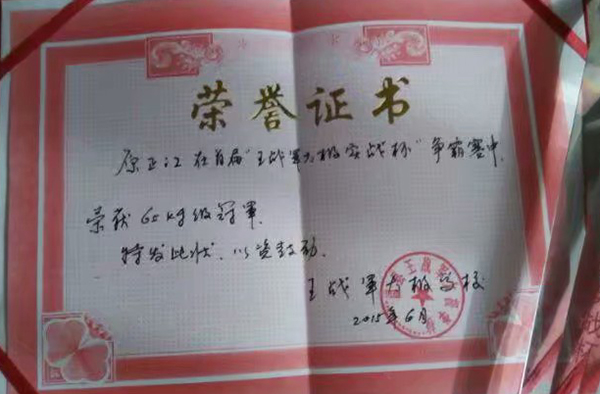 荣誉证书
原正江在首届"王战军太极实战杯"争霸赛中,
荣获65kg级冠军.
特发此状.以资鼓励.
王战军太极学校
2015年6月